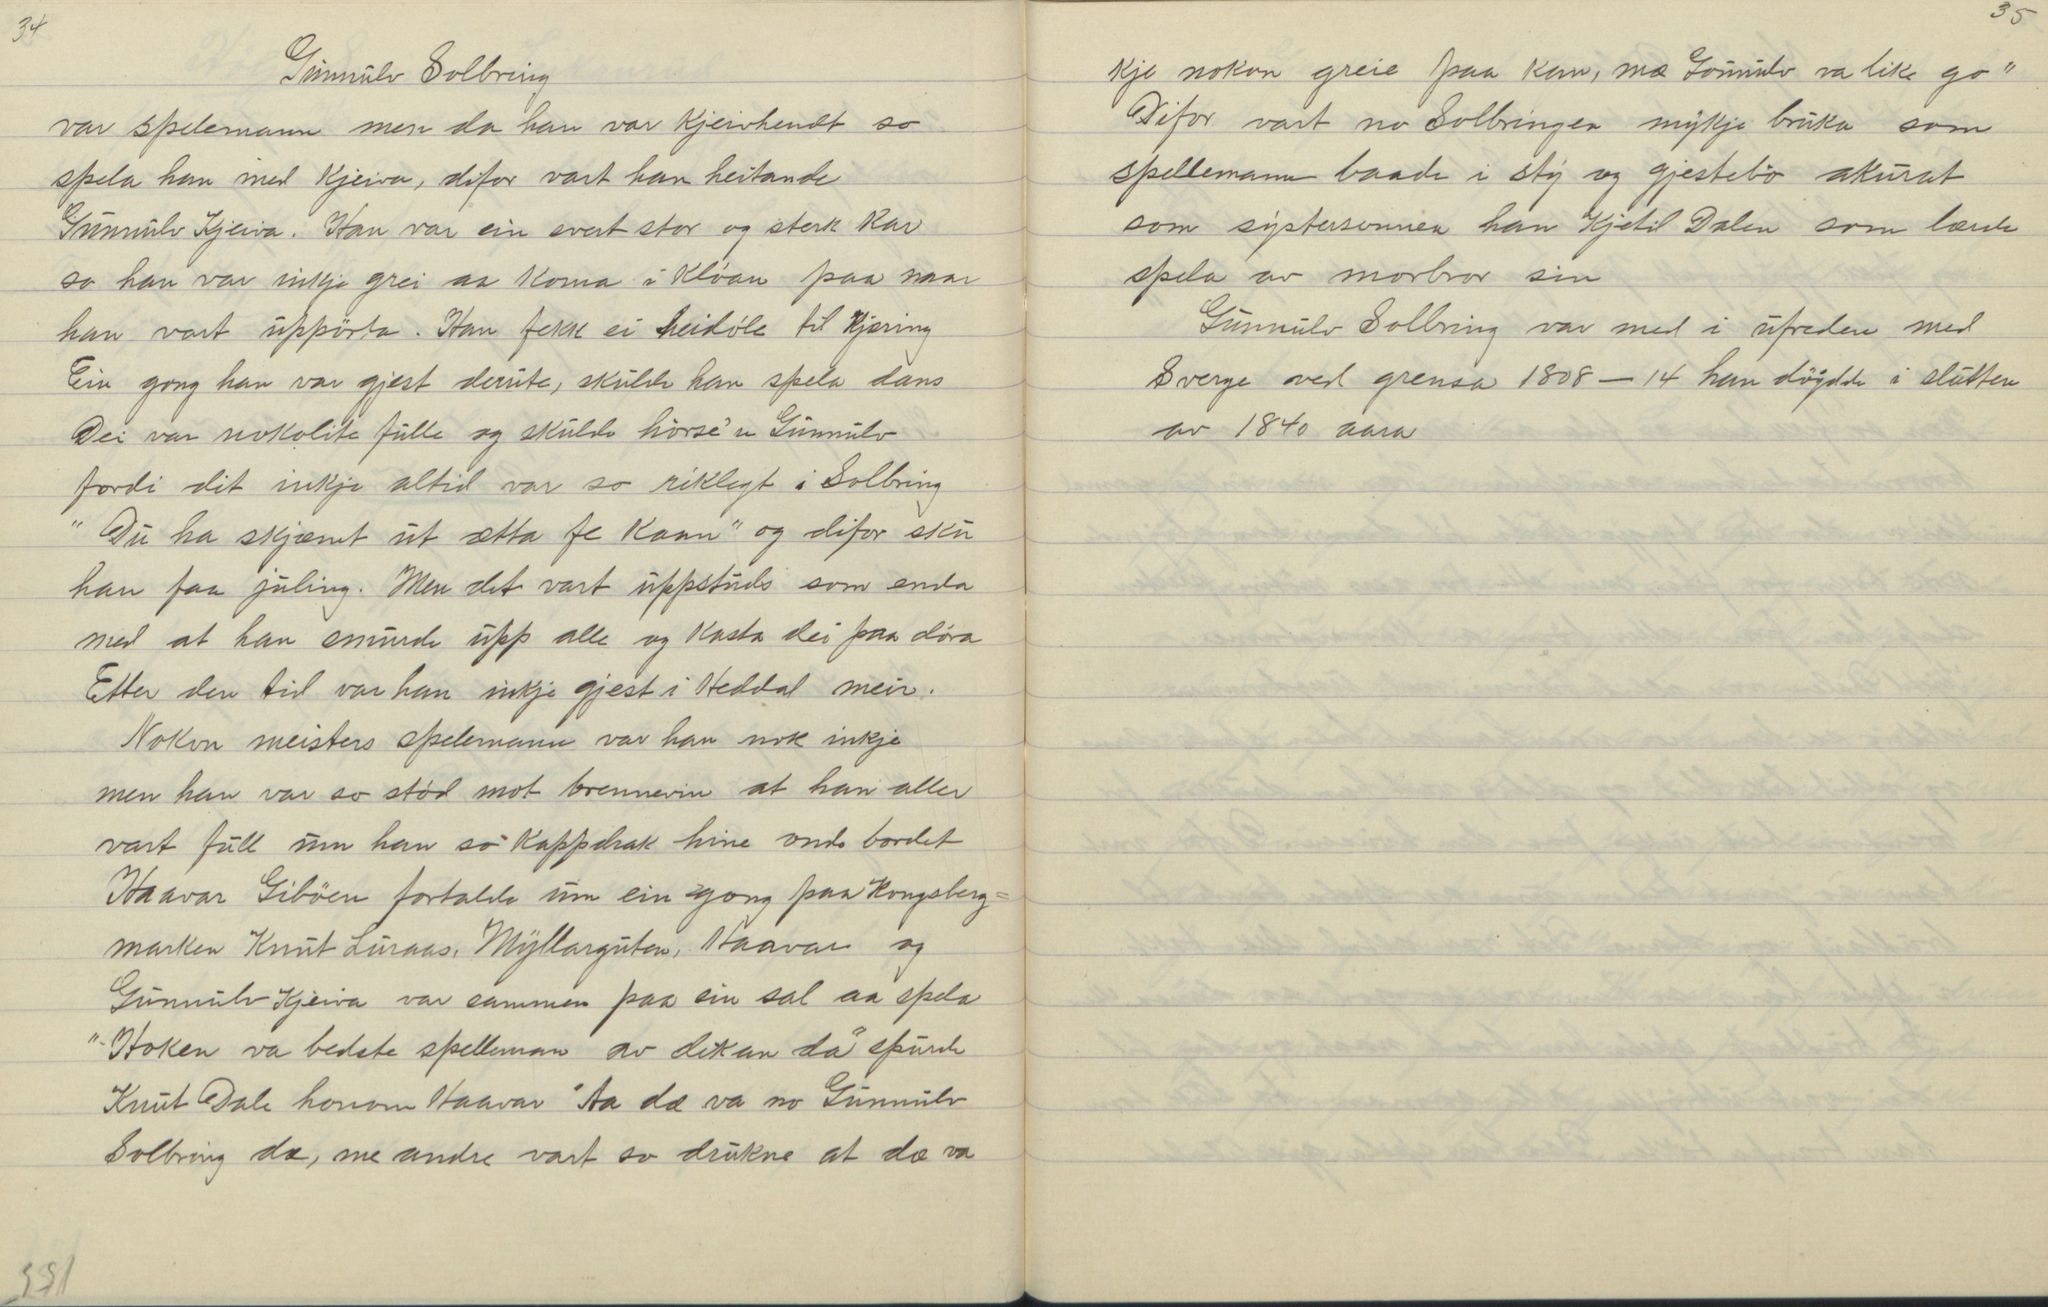 34
Gunnulv Solbring
var spelemann men da han var kjeivhendt so
spela han med kjeiva, difor vart han heitande
Gunnulv Kjeiva. Han var ein svert stor og sterk kar
so han var inkje grei aa koma i klóan paa naar
han vart uppörta. Han fekk ei heidöle til kjæring
Ein gong han var gjest derute, skulde han spela dans
Dei var nokolite fulle og skulde hörse'n Gunnulv
fordi dit inkje altid var so riklegt i Solbring
"Du ha skjæmt ut ætta fe kaan" og difor sku
han faa juling. Men det vart uppstuds som enda
med at han smurde upp alle og kasta dei paa döra
Etter den tid var han inkje gjest i Heddal meir.
Nokon meisters spelemann var han nok inkje
men han var so stöd mot brennevin at han aller
vart full um han so kappdrak hine unde bordet
Haavar Giböen fortalde um ein gong paa Kongsberg=
marken Knut Luraas, Myllarguten, Haavar og
Gunnulv Kjeiva var sammen paa ein sal aa spela
"Hoken va bedste spelleman av dikan da" spurde
Knut Dale honom Haavar "Aa dæ va no Gunnulv
Solbring dæ, me andre vart so drukne at dæ va
35
kje nokon greie paa kan, mæ Gounulv va like go"
Difor vart no Solbringen mykje bruka som
spellemann baade i sty og gjestebö akurat
som systersonnen han Kjetil Dalen som lærde
spela av morbror sin
Gunnulv Solbring var med i ufreden med
Sverge ved grensa 1808 — 14 han döydde i slutten
av 1840 aara